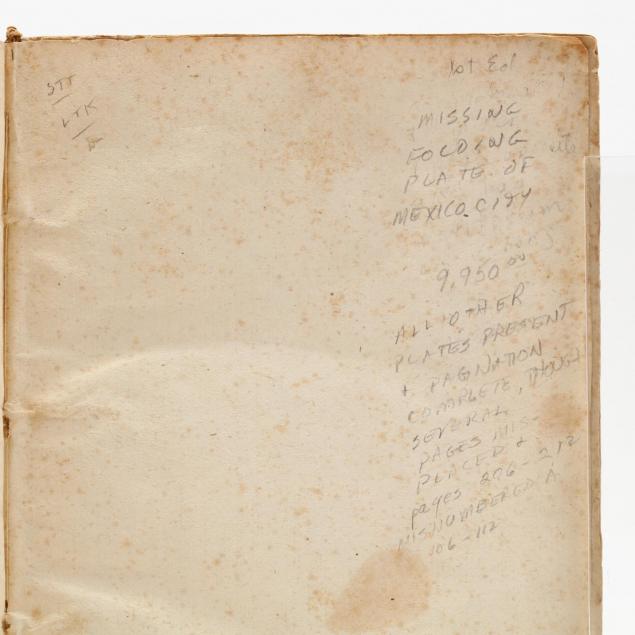 STT
LTK
1st Ed
MISSING
FOLDING
PLATE OF
MEXICO CITY
9,950 00
ALL OTHER
PLATES PRESENT
+ PAGINATION
COMPLETE, THOUGH
SEVERAL
PAGES MIS-
PLACED +
pages 206-212
MISNUMBERED A
106-112